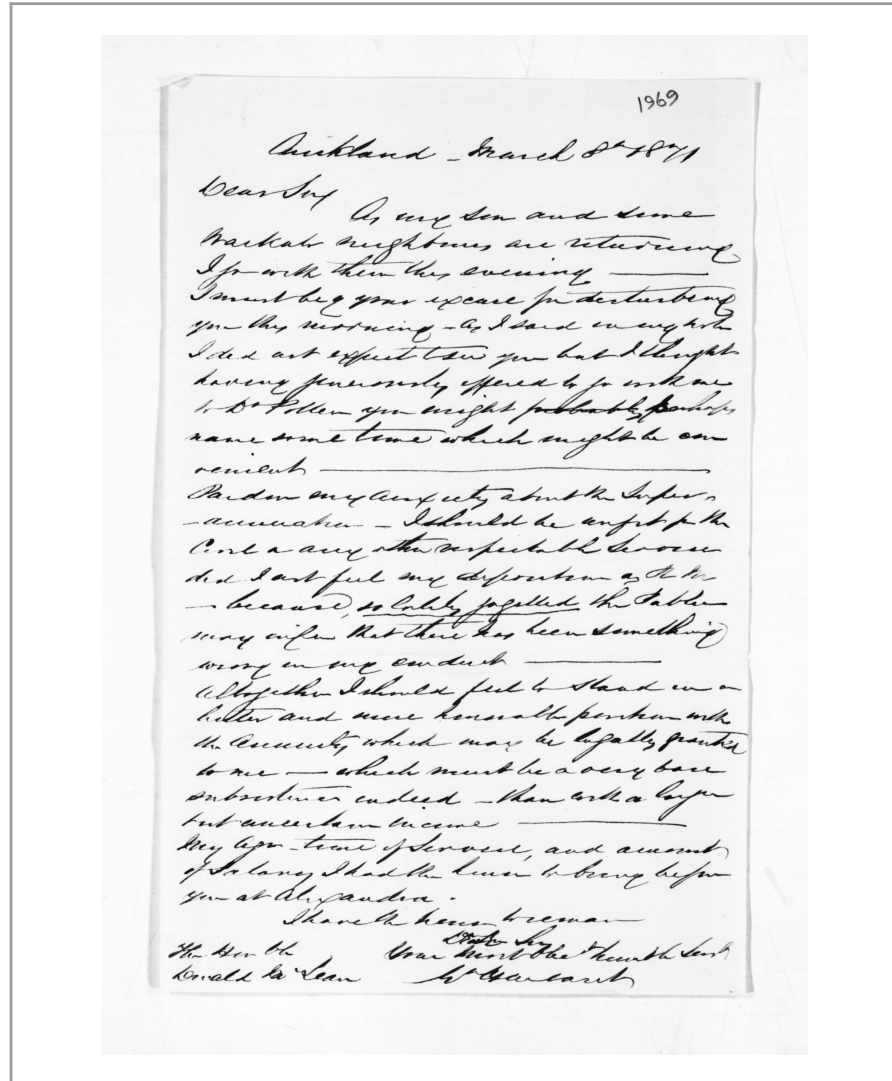 1969
Auckland - March 8th 1871
Dear Sir
As my son and some
Waikato neighbours are returning
I go with them this evening —
I must beg your excuse for disturbing
you this morning - as I said in my note
I did not expect to see you but I thought
having generously offered to go with me
to Dr Pollen you might probably perhaps
name some time which might be con
venient —
Pardon my anxiety about the Super-
-annuation - I should be unfit for the
Civil or any other respectable Service
did I not feel my deposition as R M
- because, so lately gazetted, the Public
may infer that there has been something
wrong in my conduct —
Altogether I should feel to stand in a
better and more honorable position with
the annuity which may be legally granted
to me — which must be a very bare
subsistence indeed - than with a larger
but uncertain income —
My Age - time of Service, and amount
of Salary I had the honor to bring before
you at Alexandra.
I have the honor to remain
Dear Sir
Your most obedt humble Servt
Wm Harsant
The Hon ble
Donald McLean